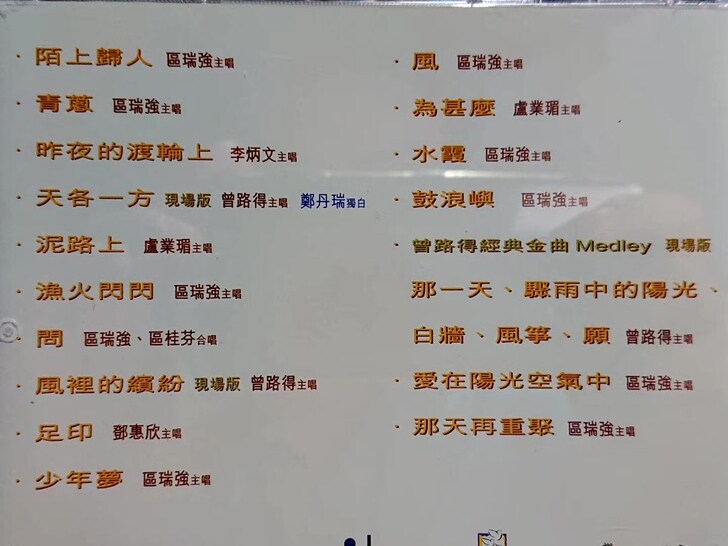 · 陌上歸人 區瑞強主唱
· 青蔥 區瑞強主唱
· 昨夜的渡輪上 李炳文主唱
· 天各一方 現場版 曾路得主唱 鄭丹瑞獨白
· 泥路上 盧業瑂主唱
· 漁火閃閃 區瑞強主唱
· 問 區瑞強、區桂芬合唱
· 風裡的繽紛 現場版 曾路得主唱
· 足印 鄧惠欣主唱
· 少年夢 區瑞強主唱
· 風 區瑞強主唱
· 為甚麼 盧業瑂主唱
· 水霞 區瑞強主唱
· 鼓浪嶼 區瑞強主唱
· 曾路得經典金曲 Medley 現場版
那一天、驟雨中的陽光、
白牆、風箏、願 曾路得主唱
· 愛在陽光空氣中 區瑞強主唱
· 那天再重聚 區瑞強主唱